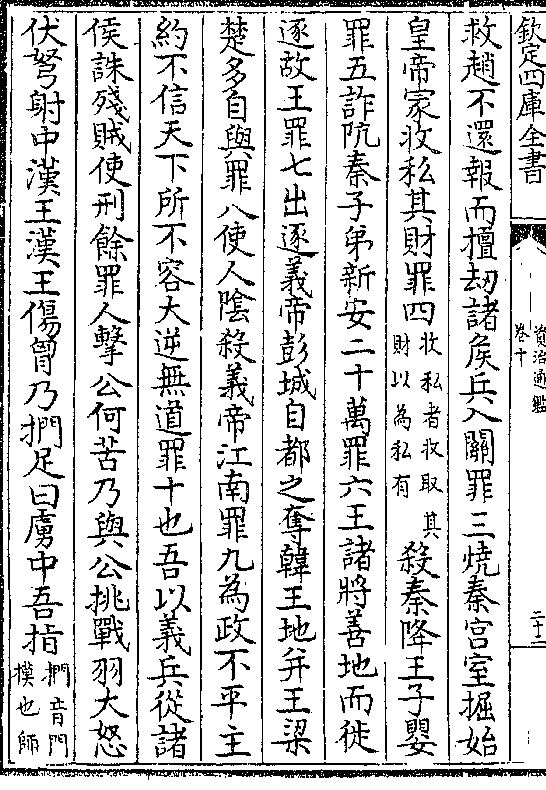 欽定四庫全書
資治通鑑
卷十
二十二
救趙不還報而擅劫諸侯兵入關罪三燒秦宫室掘始
皇帝冢收私其財罪四收私者收取其財以為私有殺秦降王子嬰
罪五詐阬秦子弟新安二十萬罪六王諸將善地而徙
逐故王罪七出逐義帝彭城自都之奪韓王地并王梁
楚多自與罪八使人陰殺義帝江南罪九為政不平主
約不信天下所不容大逆無道罪十也吾以義兵從諸
侯誅殘賊使刑餘罪人擊公何苦乃與公挑戰羽大怒
伏弩射中漢王漢王傷胷乃捫足曰虜中吾指捫音門摸也師